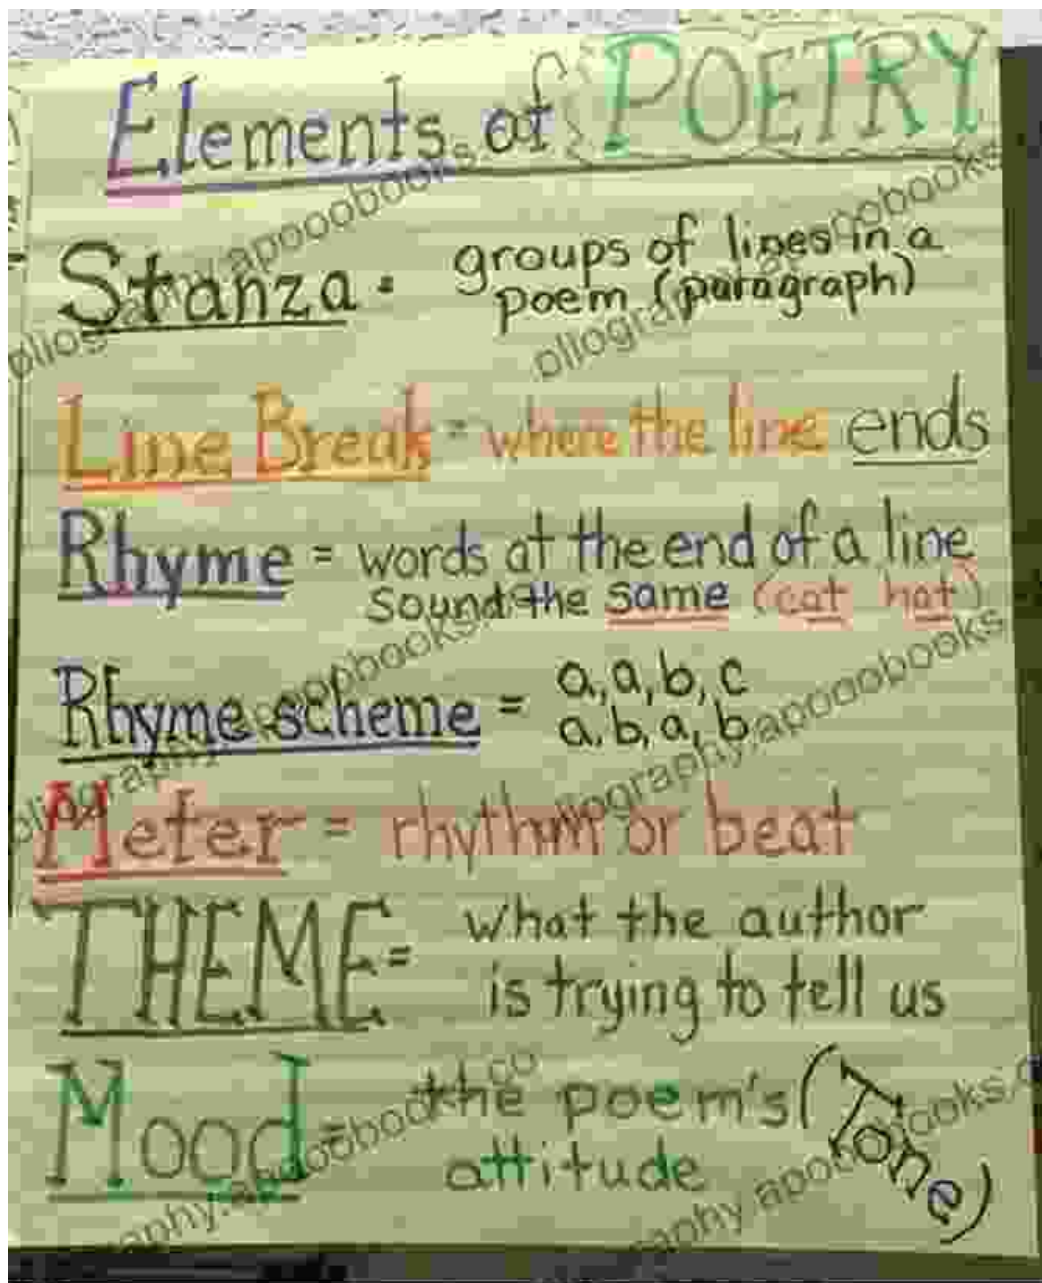 Elements of POETRY
Stanza = groups of lines in a
poem (paragraph)
Line Break = where the line ends
Rhyme = words at the end of a line
sound the same (cat hat)
Rhyme scheme = a, a, b, c
a, b, a, b
Meter = rhythm or beat
THEME = what the author
is trying to tell us
Mood = the poem's (Tone)
attitude